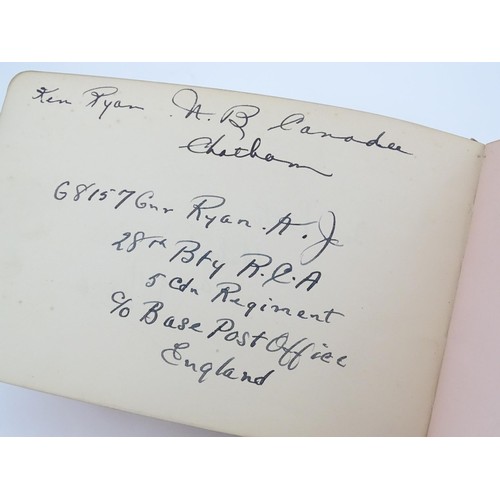 Ken Ryan N.B Canada
Chatham
G8157 Gnr Ryan. A. J
28th Bty R.C.A
5 Cdn Regiment
c/o Base Post Office
England